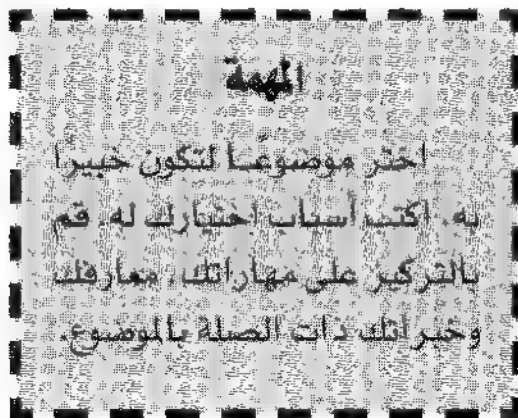 المهمة
اختر موضوعًا لتكون خبيرا
به. اكتب أسباب اختيارك له. قم
بالتركيز على مهاراتك، معارفك
وخبراتك ذات الصلة بالموضوع.